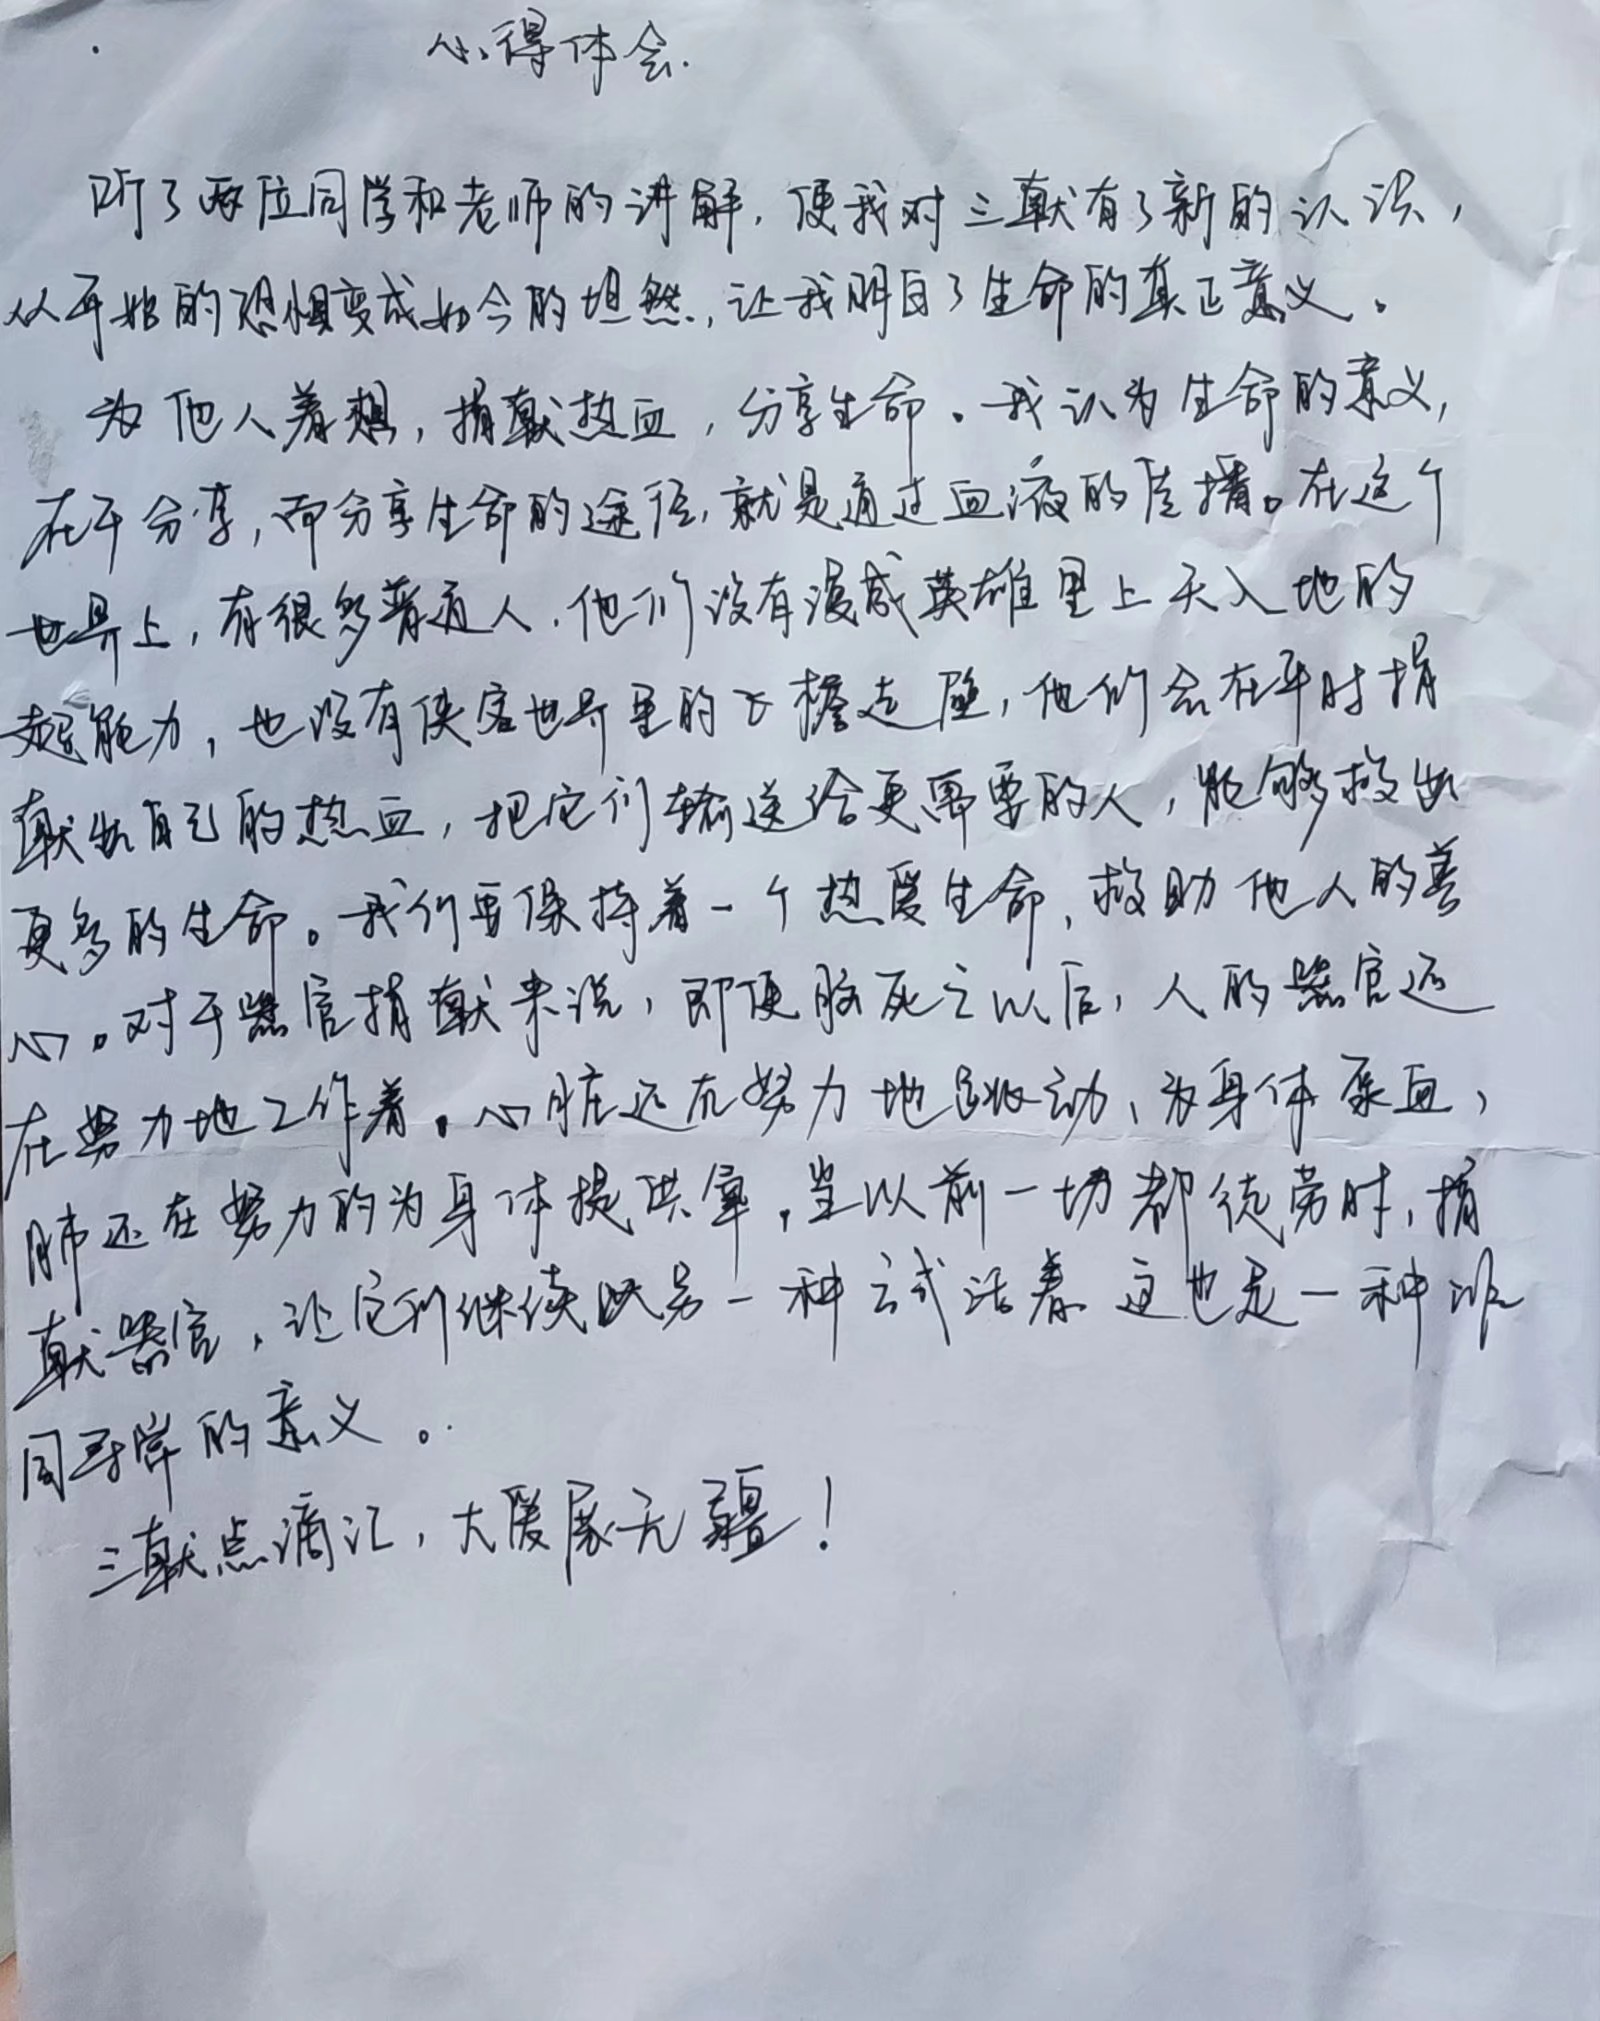 心得体会.
听了两位同学和老师的讲解，使我对三献有了新的认识，
从开始的恐惧变成如今的坦然，让我明白了生命的真正意义。
为他人着想，捐献热血，分享生命。我认为生命的意义，
在于分享，而分享生命的途径，就是通过血液的传播。在这个
世界上，有很多普通人，他们没有漫威英雄里上天入地的
超能力，也没有侠客世界里的飞檐走壁，他们会在平时捐
献出自己的热血，把它们输送给更需要的人，能够救出
更多的生命。我们要保持着一个热爱生命，救助他人的善
心。对于器官捐献来说，即便脑死之以后，人的器官还
在努力地工作着。心脏还在努力地跳动，为身体泵血，
肺还在努力的为身体提供氧，当以前一切都徒劳时，捐
献器官，让它们继续以另一种方式活着 这也是一种
同寻常的意义。
三献点滴汇，大爱展无疆！